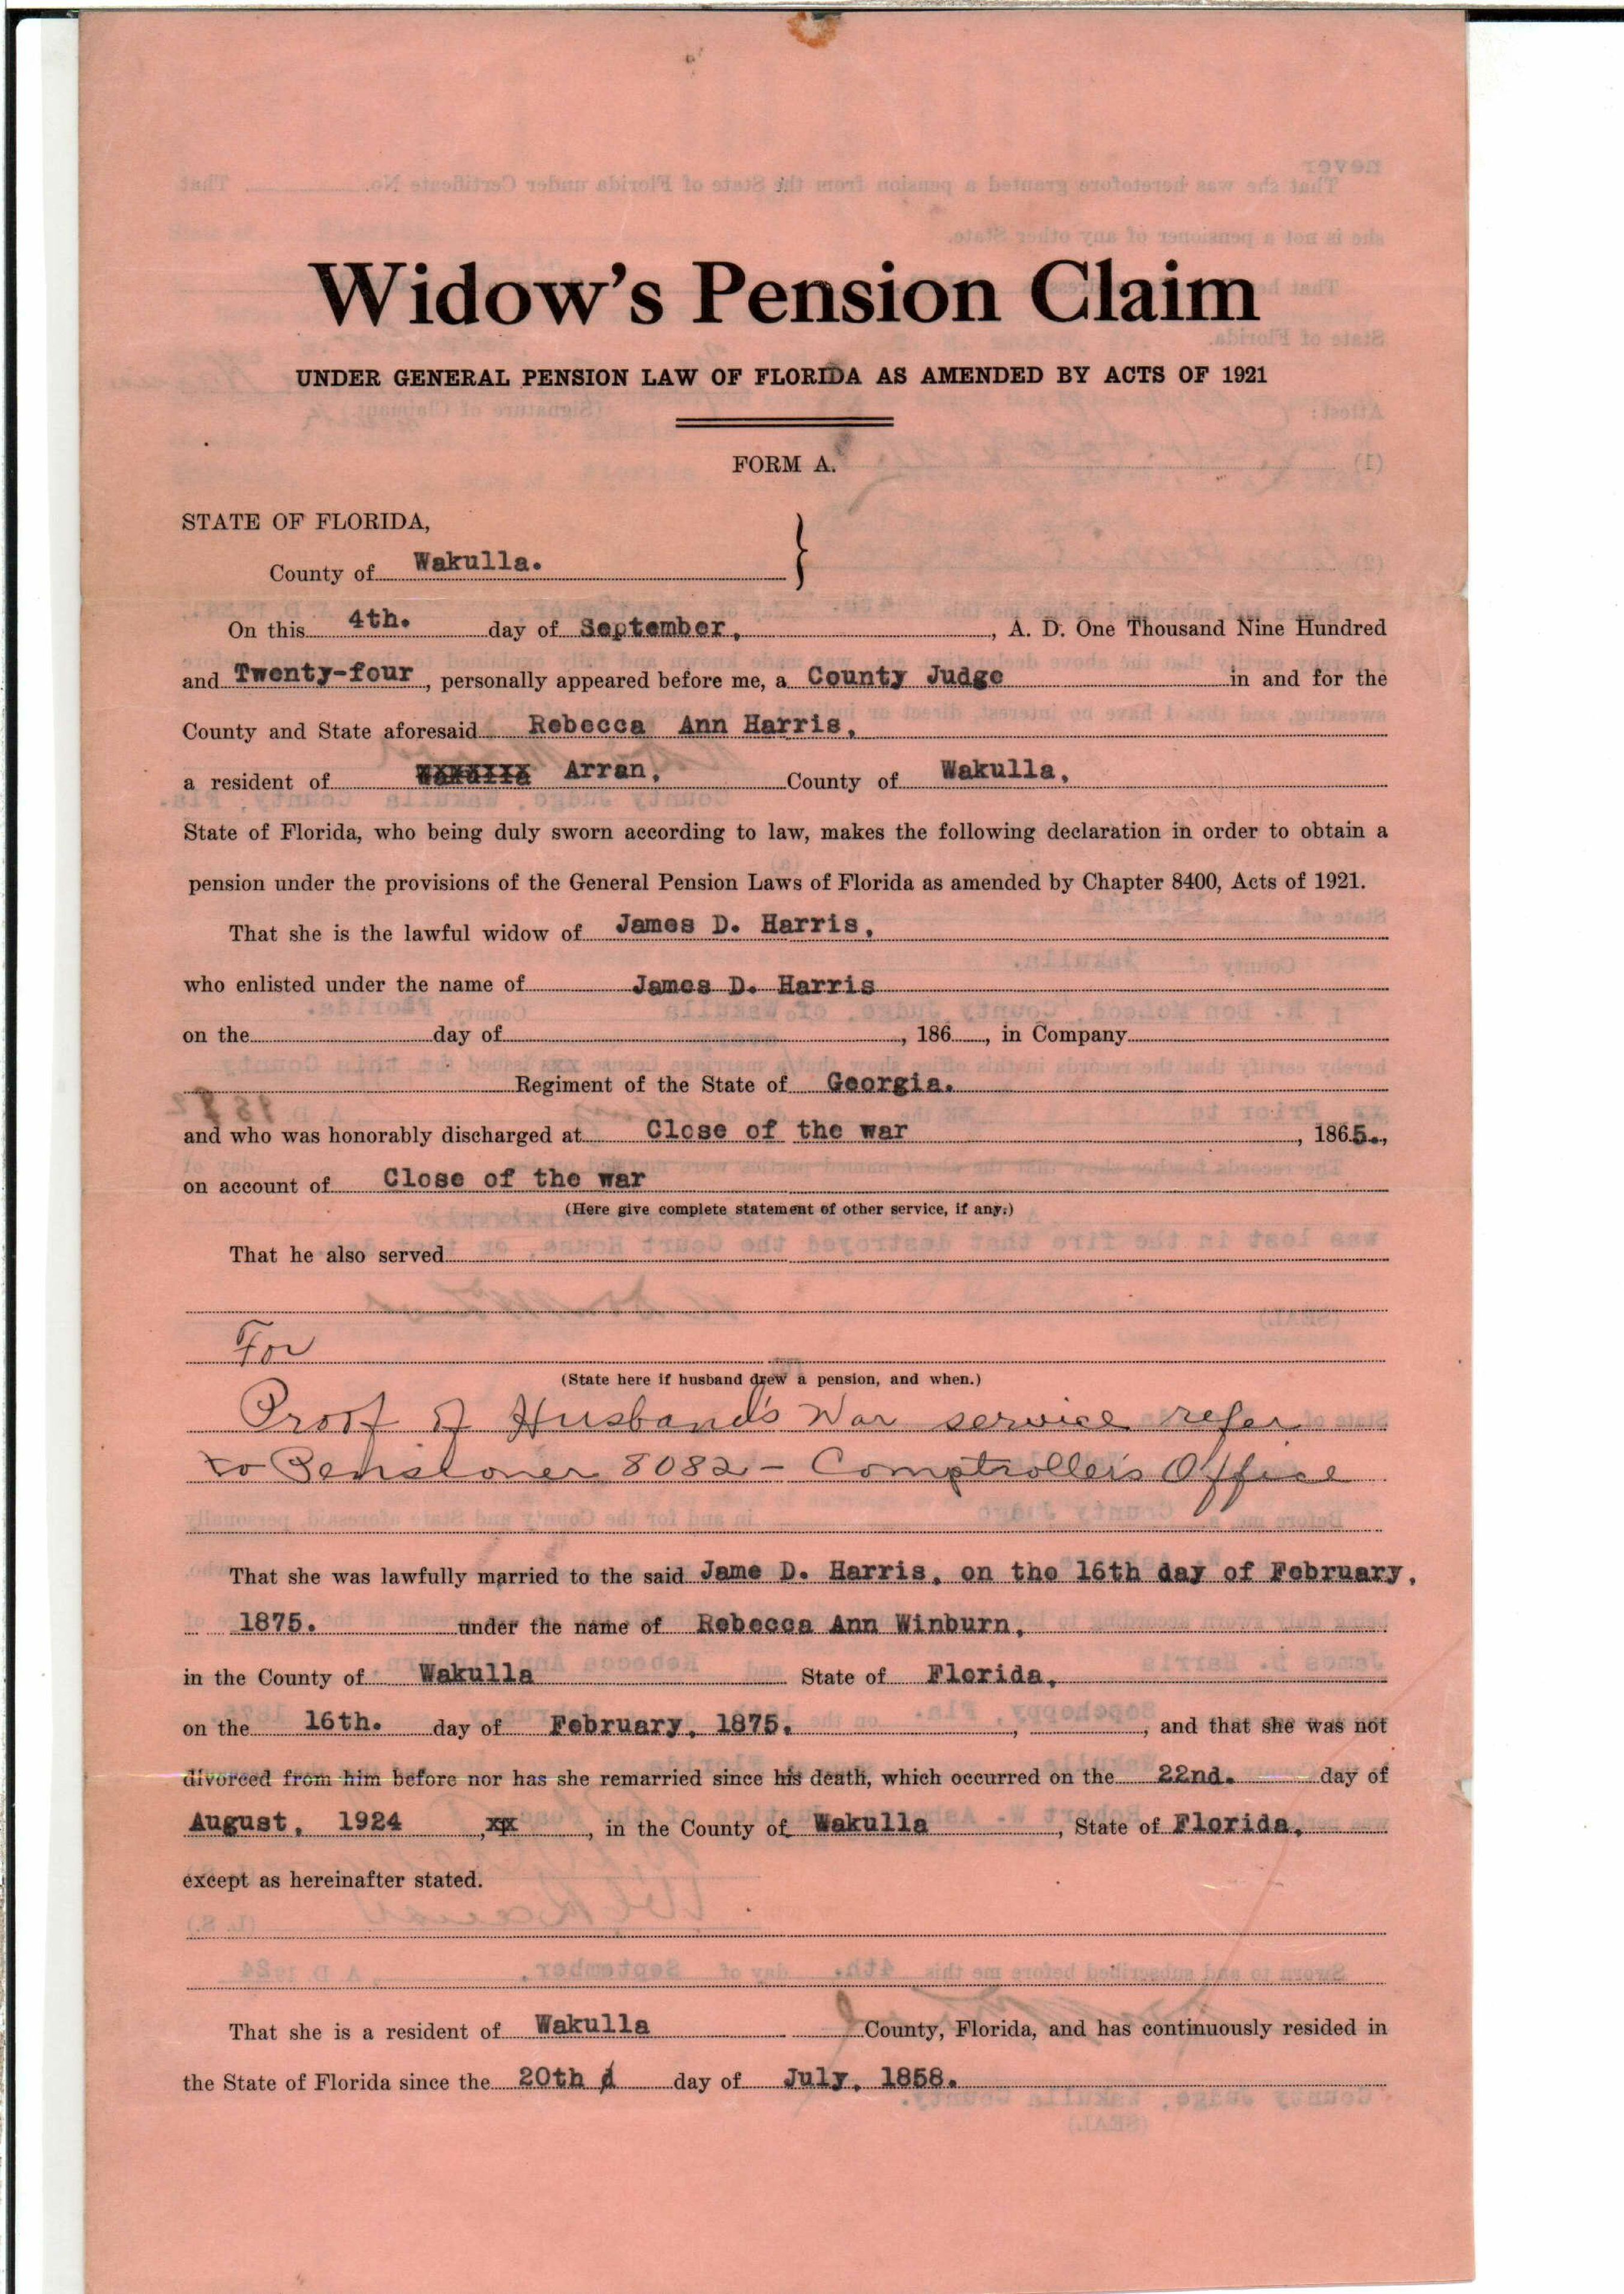 Widow's Pension Claim
UNDER GENERAL PENSION LAW OF FLORIDA AS AMENDED BY ACTS OF 1921
FORM A.
STATE OF FLORIDA,
County of Wakulla.
On this 4th. day of September, , A. D. One Thousand Nine Hundred
and Twenty-four, personally appeared before me, a County Judge in and for the
County and State aforesaid Rebecca Ann Harris,
a resident of Arran, County of Wakulla,
State of Florida, who being duly sworn according to law, makes the following declaration in order to obtain a
pension under the provisions of the General Pension Laws of Florida as amended by Chapter 8400, Acts of 1921.
That she is the lawful widow of James D. Harris,
who enlisted under the name of James D. Harris
on the day of , 186 , in Company
Regiment of the State of Georgia.
and who was honorably discharged at Close of the war , 1865.,
on account of Close of the war
(Here give complete statement of other service, if any.)
That he also served
For
(State here if husband drew a pension, and when.)
Proof of Husband's War service refer
to Pensioner 8082 - Comptroller's Office
That she was lawfully married to the said Jame D. Harris, on the 16th day of February,
1875. under the name of Rebecca Ann Winburn,
in the County of Wakulla State of Florida,
on the 16th. day of February, 1875. , , and that she was not
divorced from him before nor has she remarried since his death, which occurred on the 22nd. day of
August, 1924 , xx , in the County of Wakulla , State of Florida,
except as hereinafter stated.
That she is a resident of Wakulla County, Florida, and has continuously resided in
the State of Florida since the 20th d day of July, 1858.